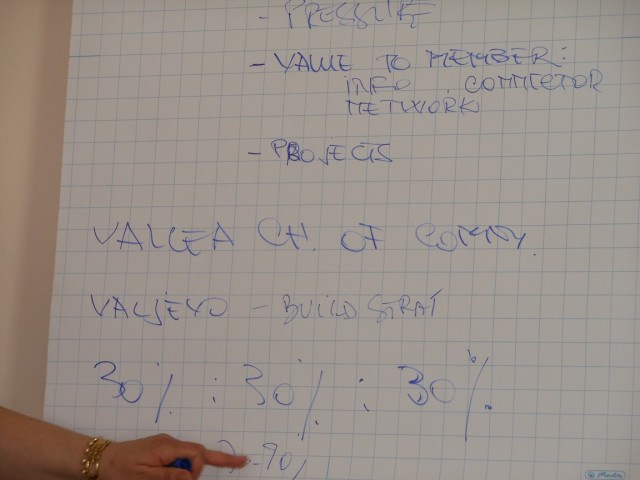 - PRESSURE
- VALUE TO MEMBER:
INFO CONNECTOR
NETWORK
- PROJECTS
VALCEA CH. OF COMM.
VALJEVO - BUILD STRAT
30% : 30% : 30%